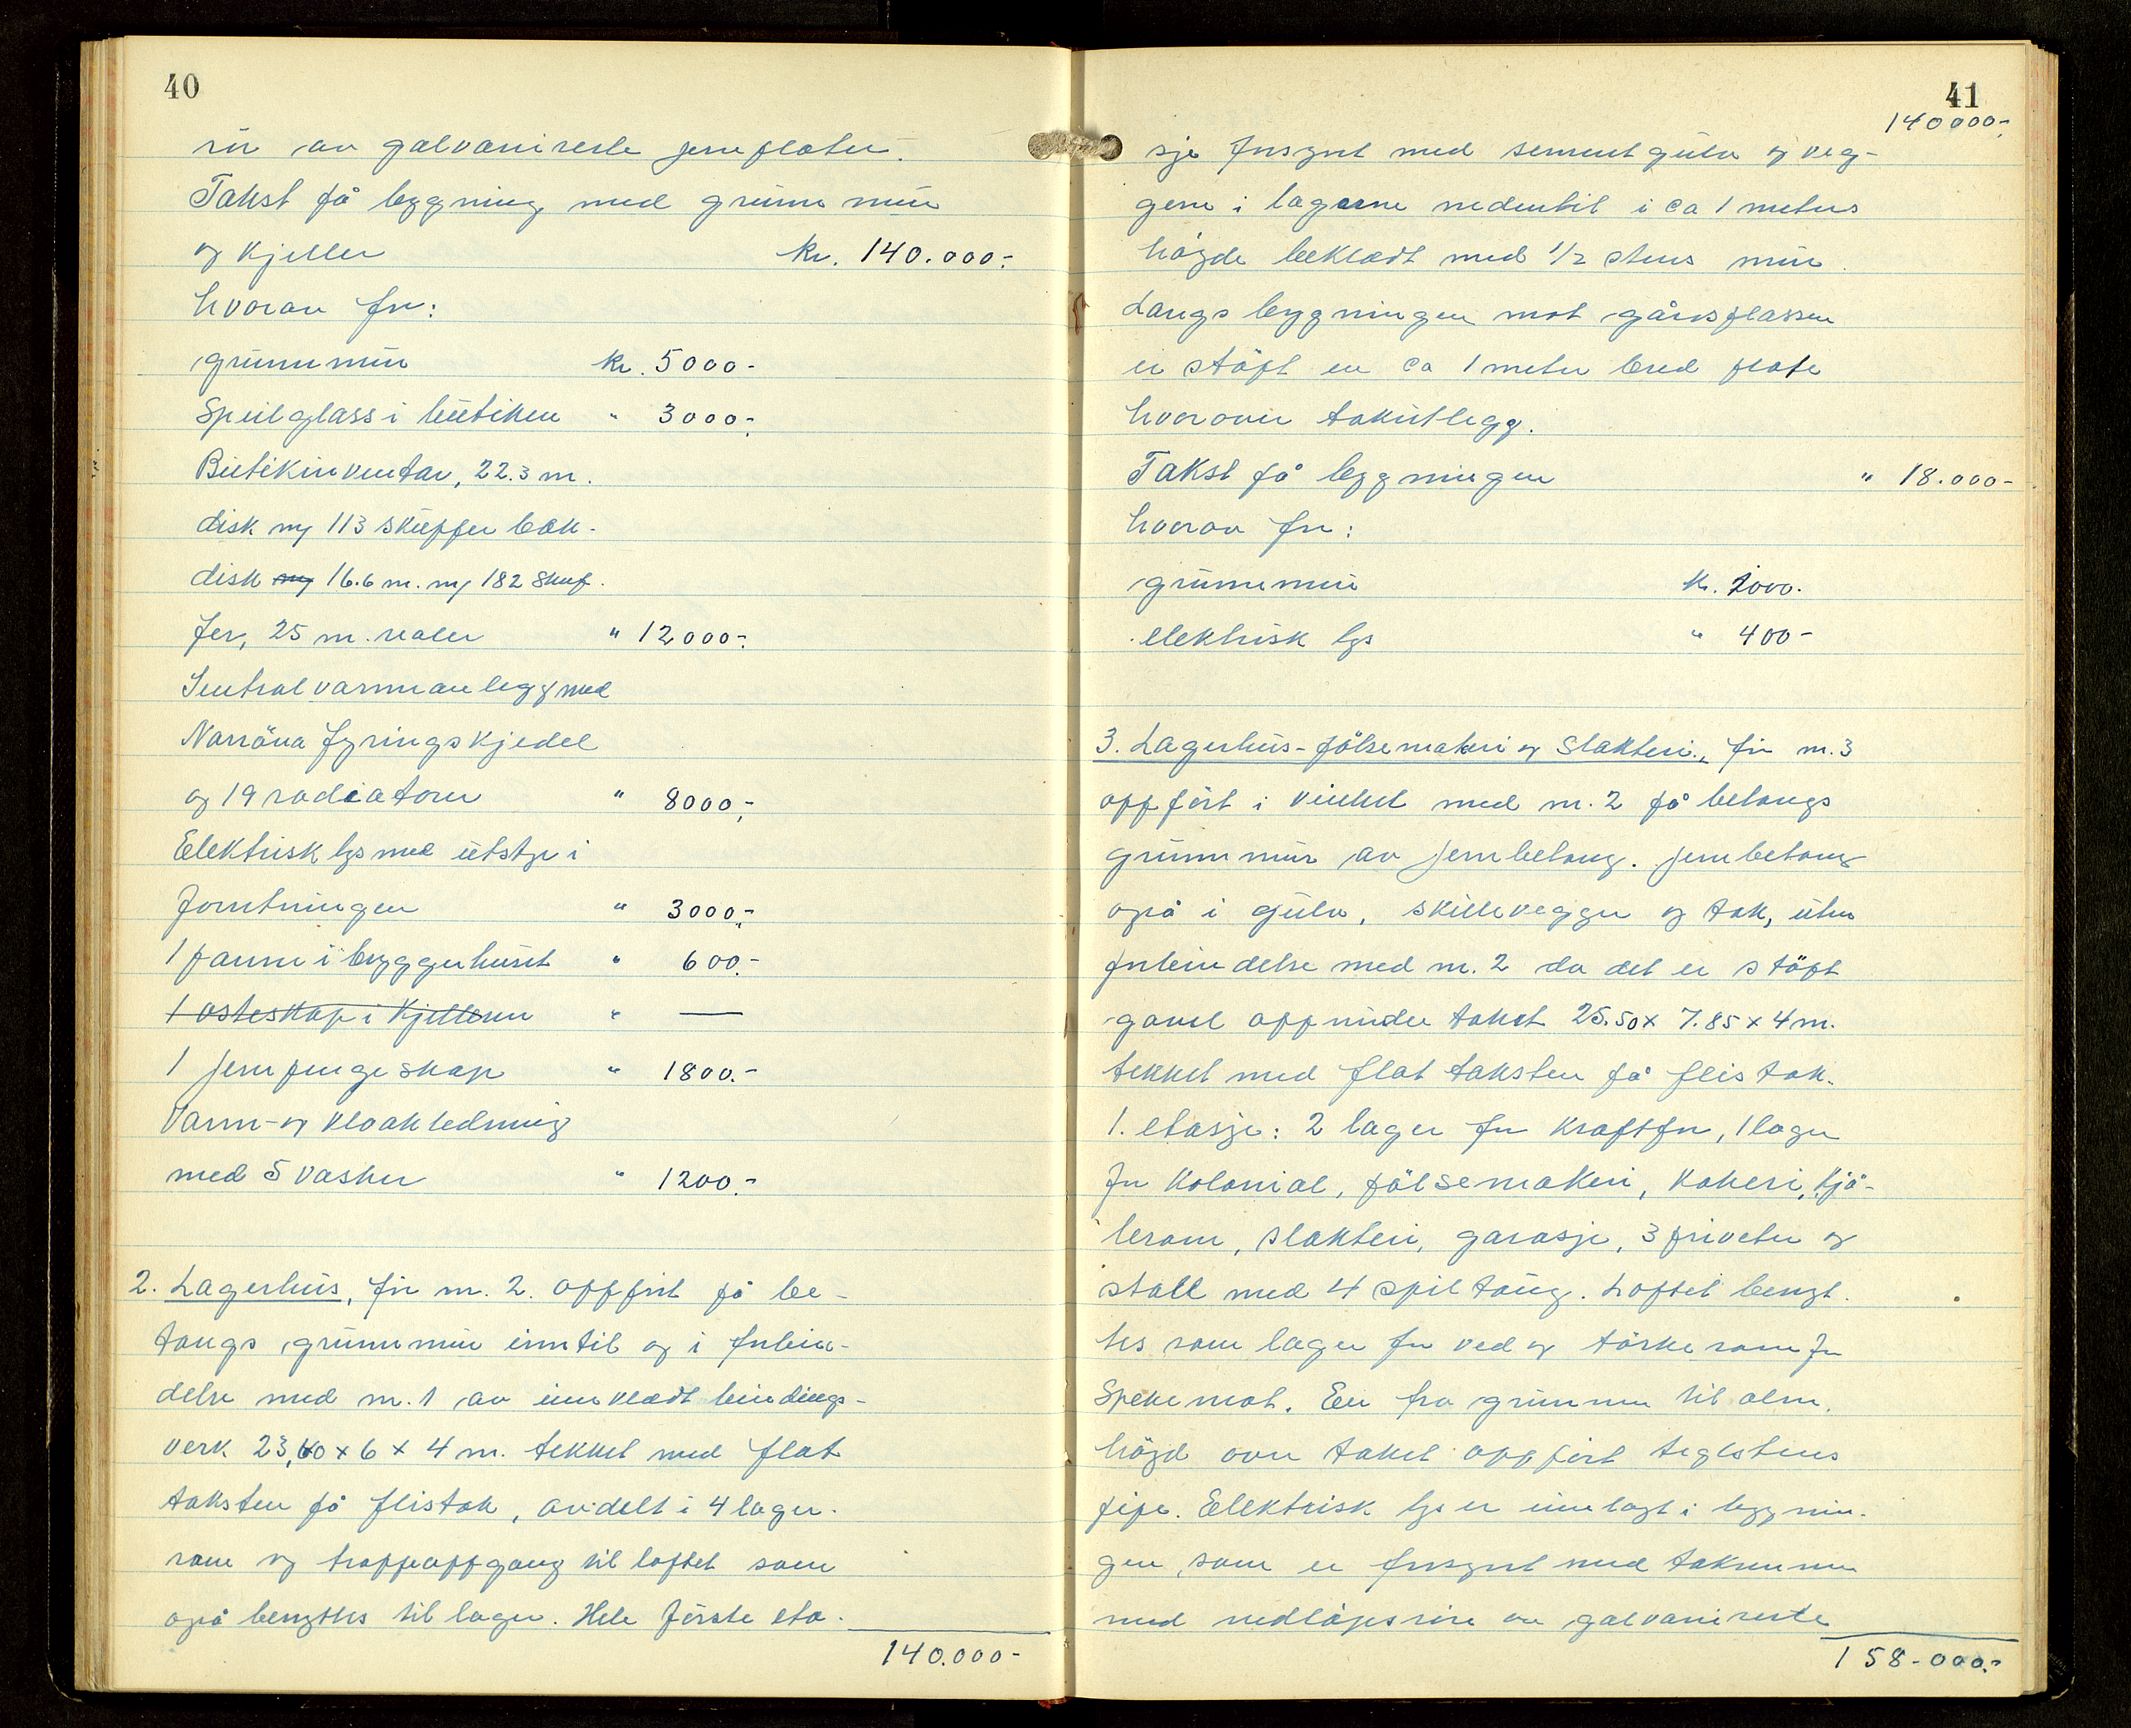 40
rör av galvaniserte jernplater.
Takst på bygning med grunnmur
og kjeller kr. 140.000.-
hvorav for:
grunnmur kr. 5000.-
Speilglass i butiken " 3000.-
Butikinventar, 22.3 m.
disk m/ 113 skuffer bak-
disk m/ 16.6 m. m/ 182 skuf.
fer, 25 m. reoler " 12000.-
Sentralvarmeanlegg med
Narröna fyringskjedel
og 19 radiatorer " 8000.-
Elektrisk lys med utstyr i
forretningen " 3000.-
1 panne i bryggerhuset " 600.-
1 osteskap i kjelleren " —
1 jernpengeskap " 1800.-
Vann- og kloakledning
med 5 vasker " 1200.-
2. Lagerhus, fir nr. 2. oppfört på be-
tongs grunnmur inntil og i forbin-
delse med nr. 1 av innvendt bindings-
verk 23,60 x 6 x 4 m. tekket med flat
taksten på flistak, avdelt i 4 lager-
rom og trappeoppgang til loftet som
også benyttes til lager. Hele förste eta-
140.000-
41
140000.-
sje forsynt med sementgulv og veg-
gene i lagerne nedentil i ca 1 meters
höyde beklædt med 1/2 stens mur.
Langs bygningen mot gårdsplassen
er stöpt en ca 1 meter bred plate
hvorover takutlegg.
Takst på bygningen " 18.000-
hvorav for:
grunnmur kr. 2000.
elektrisk lys " 400-
3. Lagerhus-pölsemakeri og Slakteri., fir nr. 3
oppfört i vinkel med nr. 2 på betongs
grunnmur av jernbetong. Jernbetong
også i gulv, skillevegger og tak, uten
forbindelse med nr. 2 da det er stöpt
gavel opp under taket 25.50 x 7.85 x 4 m.
tekket med flat taksten på flistak.
1. etasje: 2 lager for kraftfor, 1 lager
for kolonial, pölsemakeri, kokeri, kjö-
lerom, slakteri, garasje, 3 priveter og
stall med 4 spiltaug. Loftet benyt-
tes som lager for ved og törkerom for
spekemat. En fra grunnen til alm.
höyd over taket oppfört teglstens
pipe. Elektrisk lys er innlagt i bygnin-
gen, som er forsynt med takrenner
med nedlöpsrör av galvaniserte
158-000.-